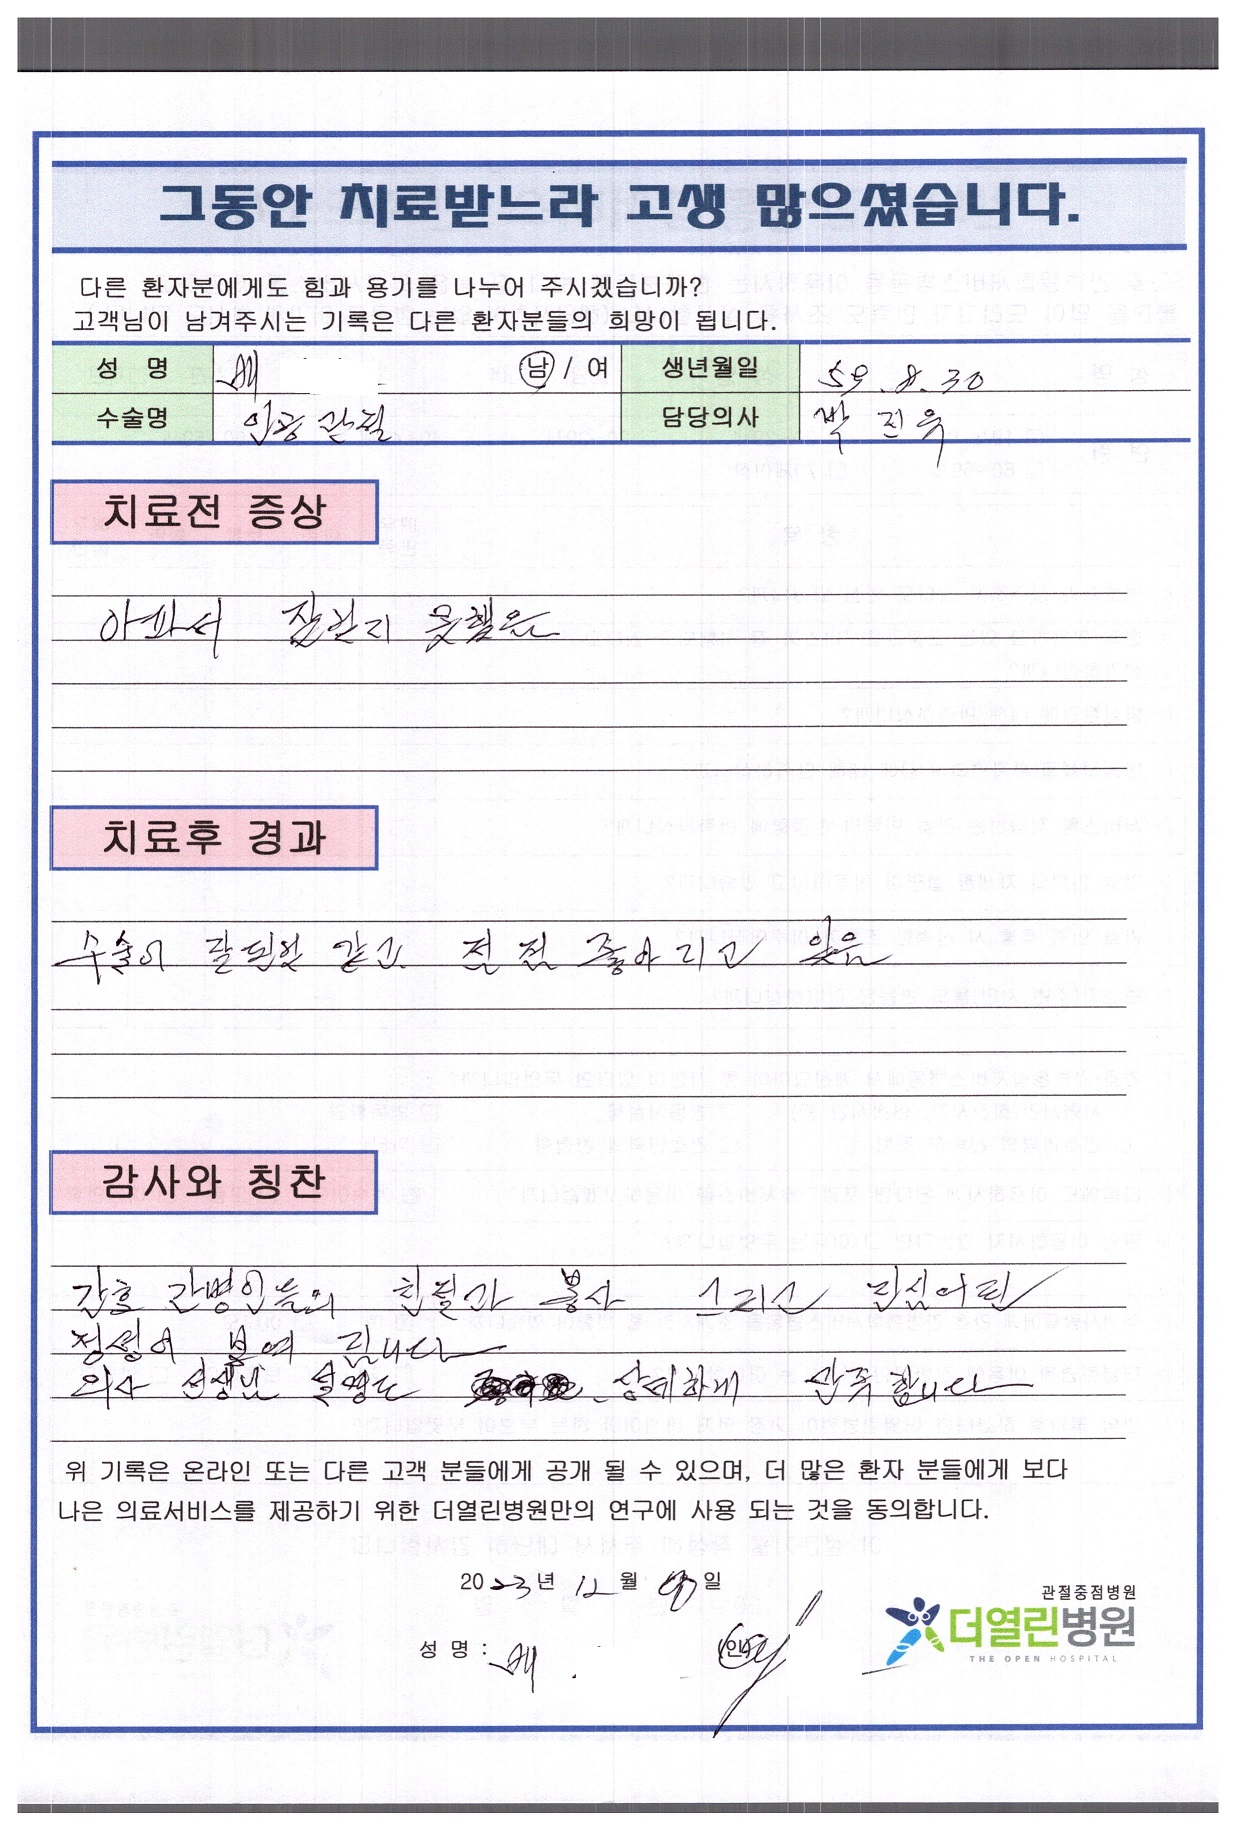 그동안 치료받느라 고생 많으셨습니다.
다른 환자분에게도 힘과 용기를 나누어 주시겠습니까?
고객님이 남겨주시는 기록은 다른 환자분들의 희망이 됩니다.
성 명 배 남 / 여 생년월일 59.8.30
수술명 인공관절 담당의사 박진욱
치료전 증상
아파서 잘걷지 못했음
치료후 경과
수술이 잘된것 같고 점점 좋아지고 있음
감사와 칭찬
간호 간병인들의 친절과 봉사 그리고 진심어린
정성이 보여 집니다
의사 선생님 설명도 상세하게 만족합니다
위 기록은 온라인 또는 다른 고객 분들에게 공개 될 수 있으며, 더 많은 환자 분들에게 보다
나은 의료서비스를 제공하기 위한 더열린병원만의 연구에 사용 되는 것을 동의합니다.
2023년 12월 일
성 명 : 배 (인)
관절중점병원
더열린병원
THE OPEN HOSPITAL